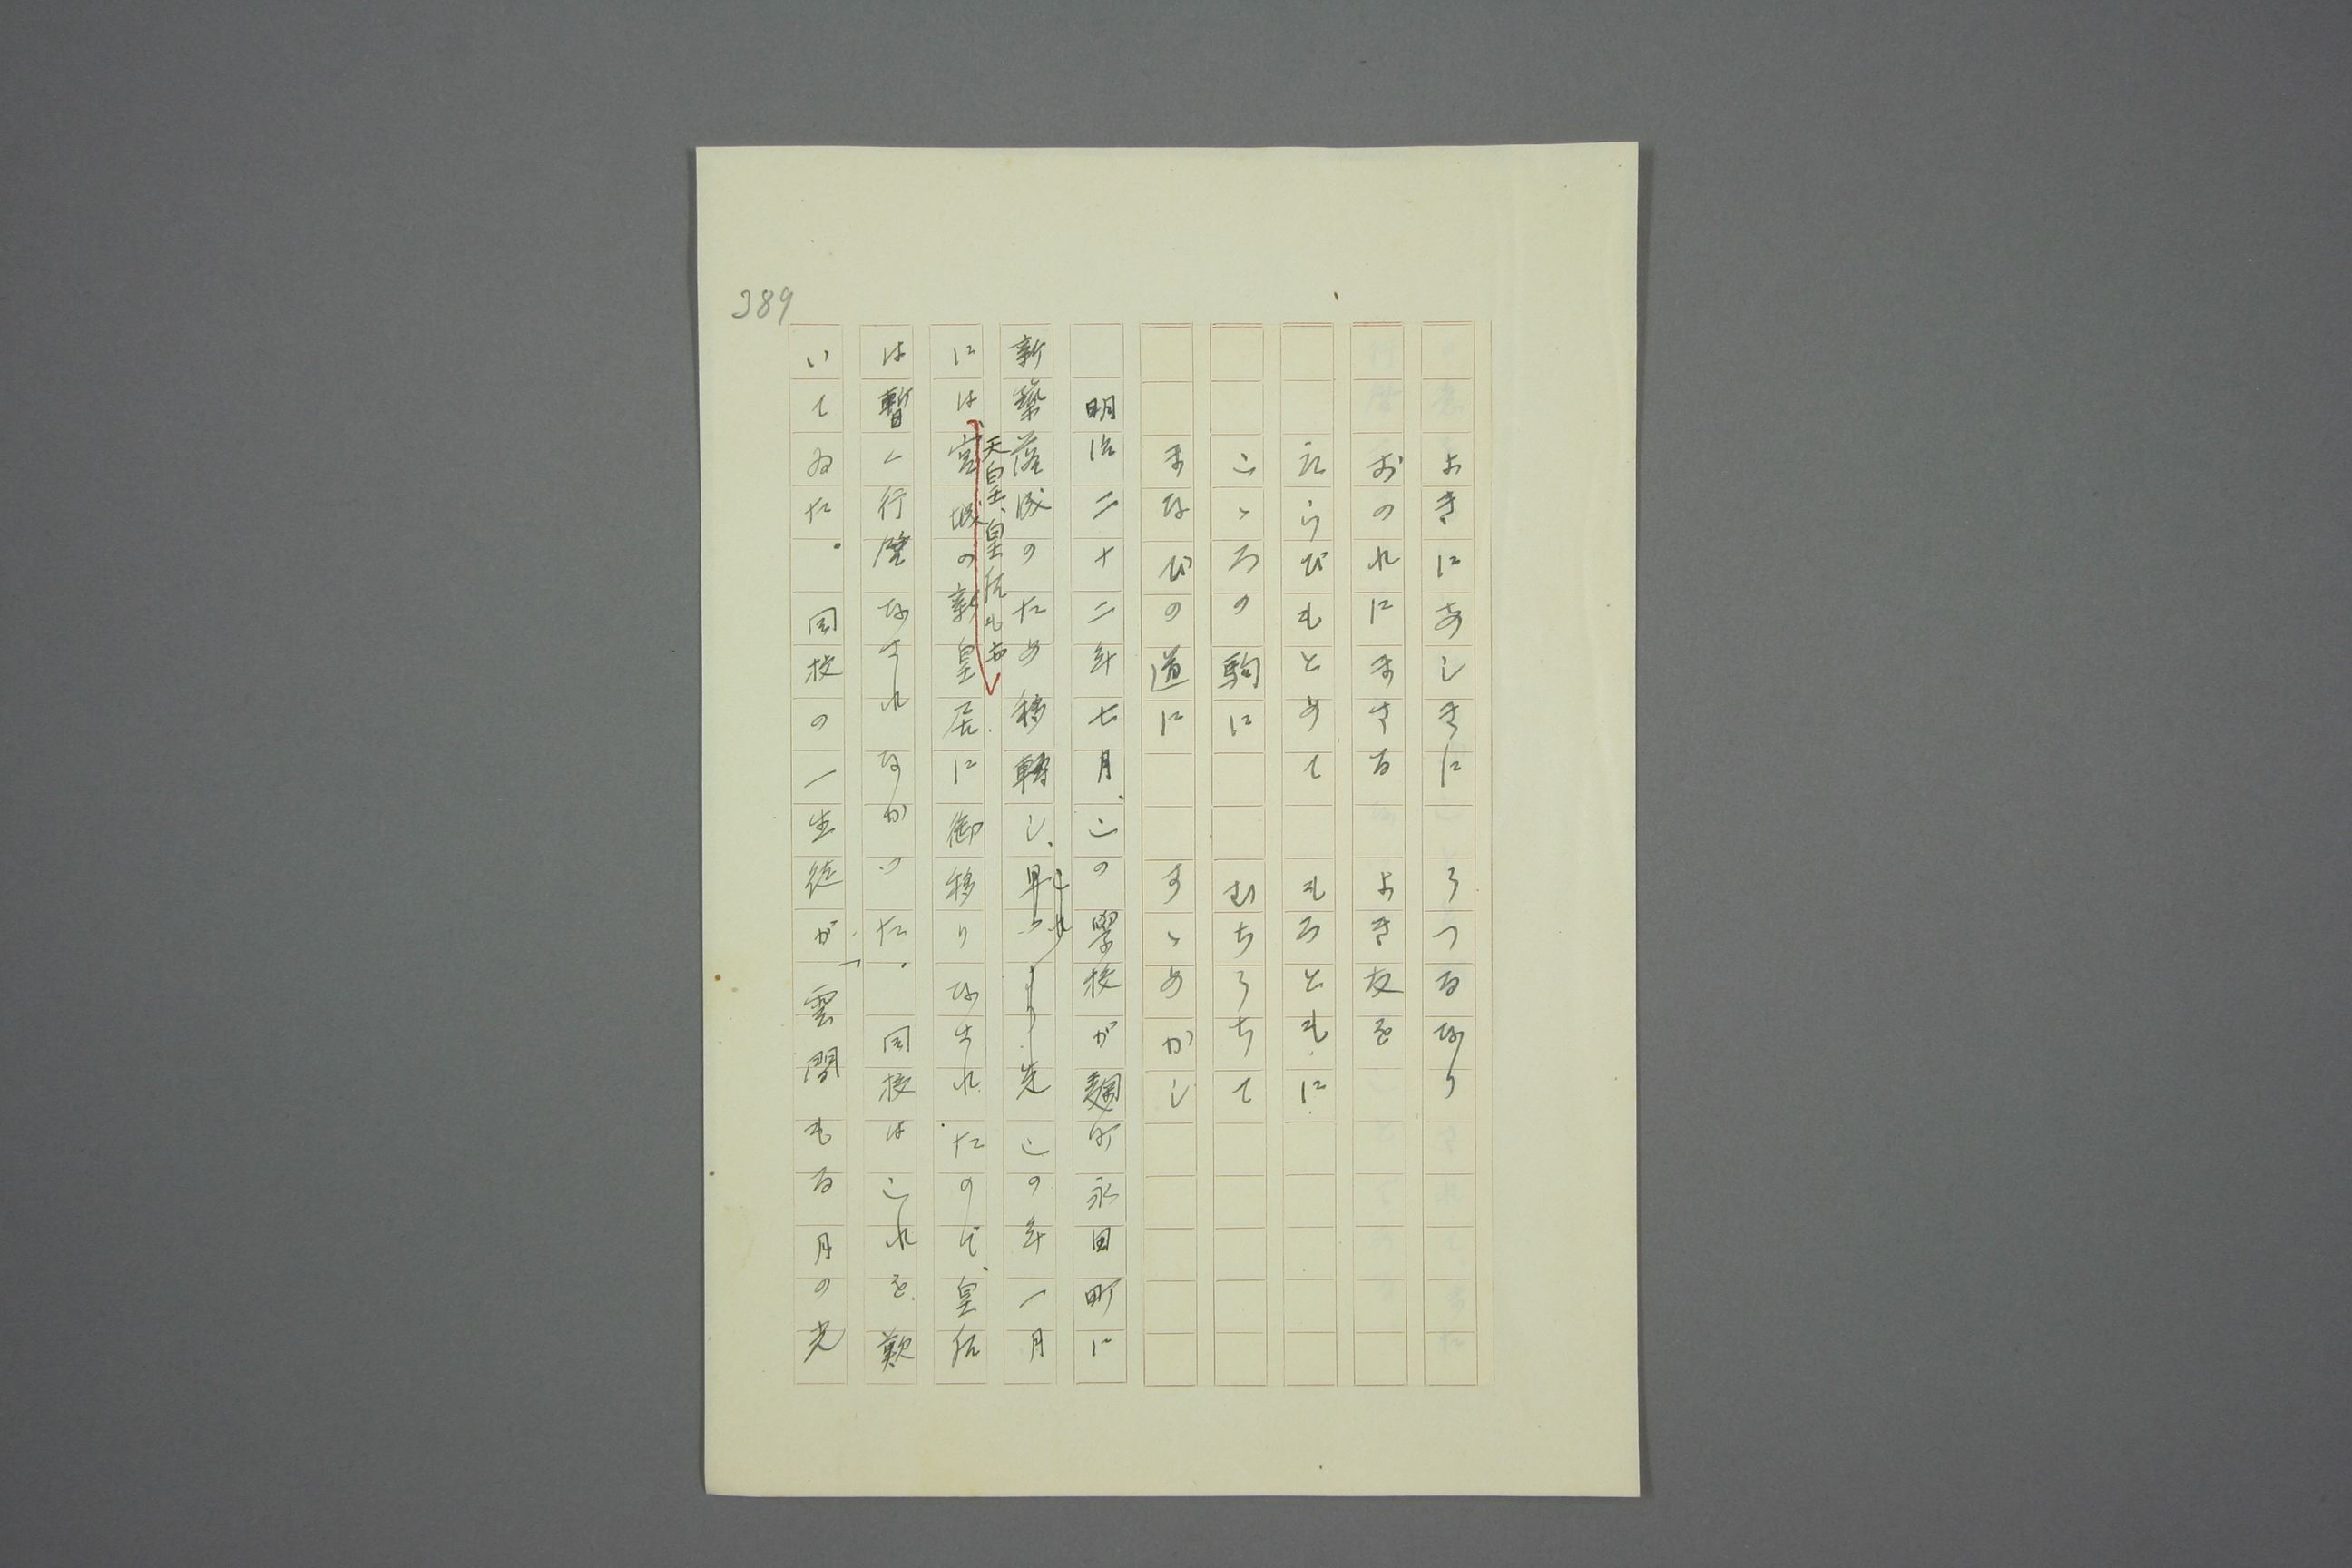 よきにあしきに　うつるなり
おのれにまさる　よき友を
えらびもとめて　もろともに
こゝろの駒に　むちうちて
まなびの道に　すゝめかし
明治二十二年七月、この學校が麹町永田町に
新築落成のため移轉し、これより先この年一月
には天皇、皇后も亦宮城の新皇居に御移りなされたので、皇后
は暫く行啓なされなかつた。同校はこれを歎
いてゐた。同校の一生徒が、「雲間もる月の光
389